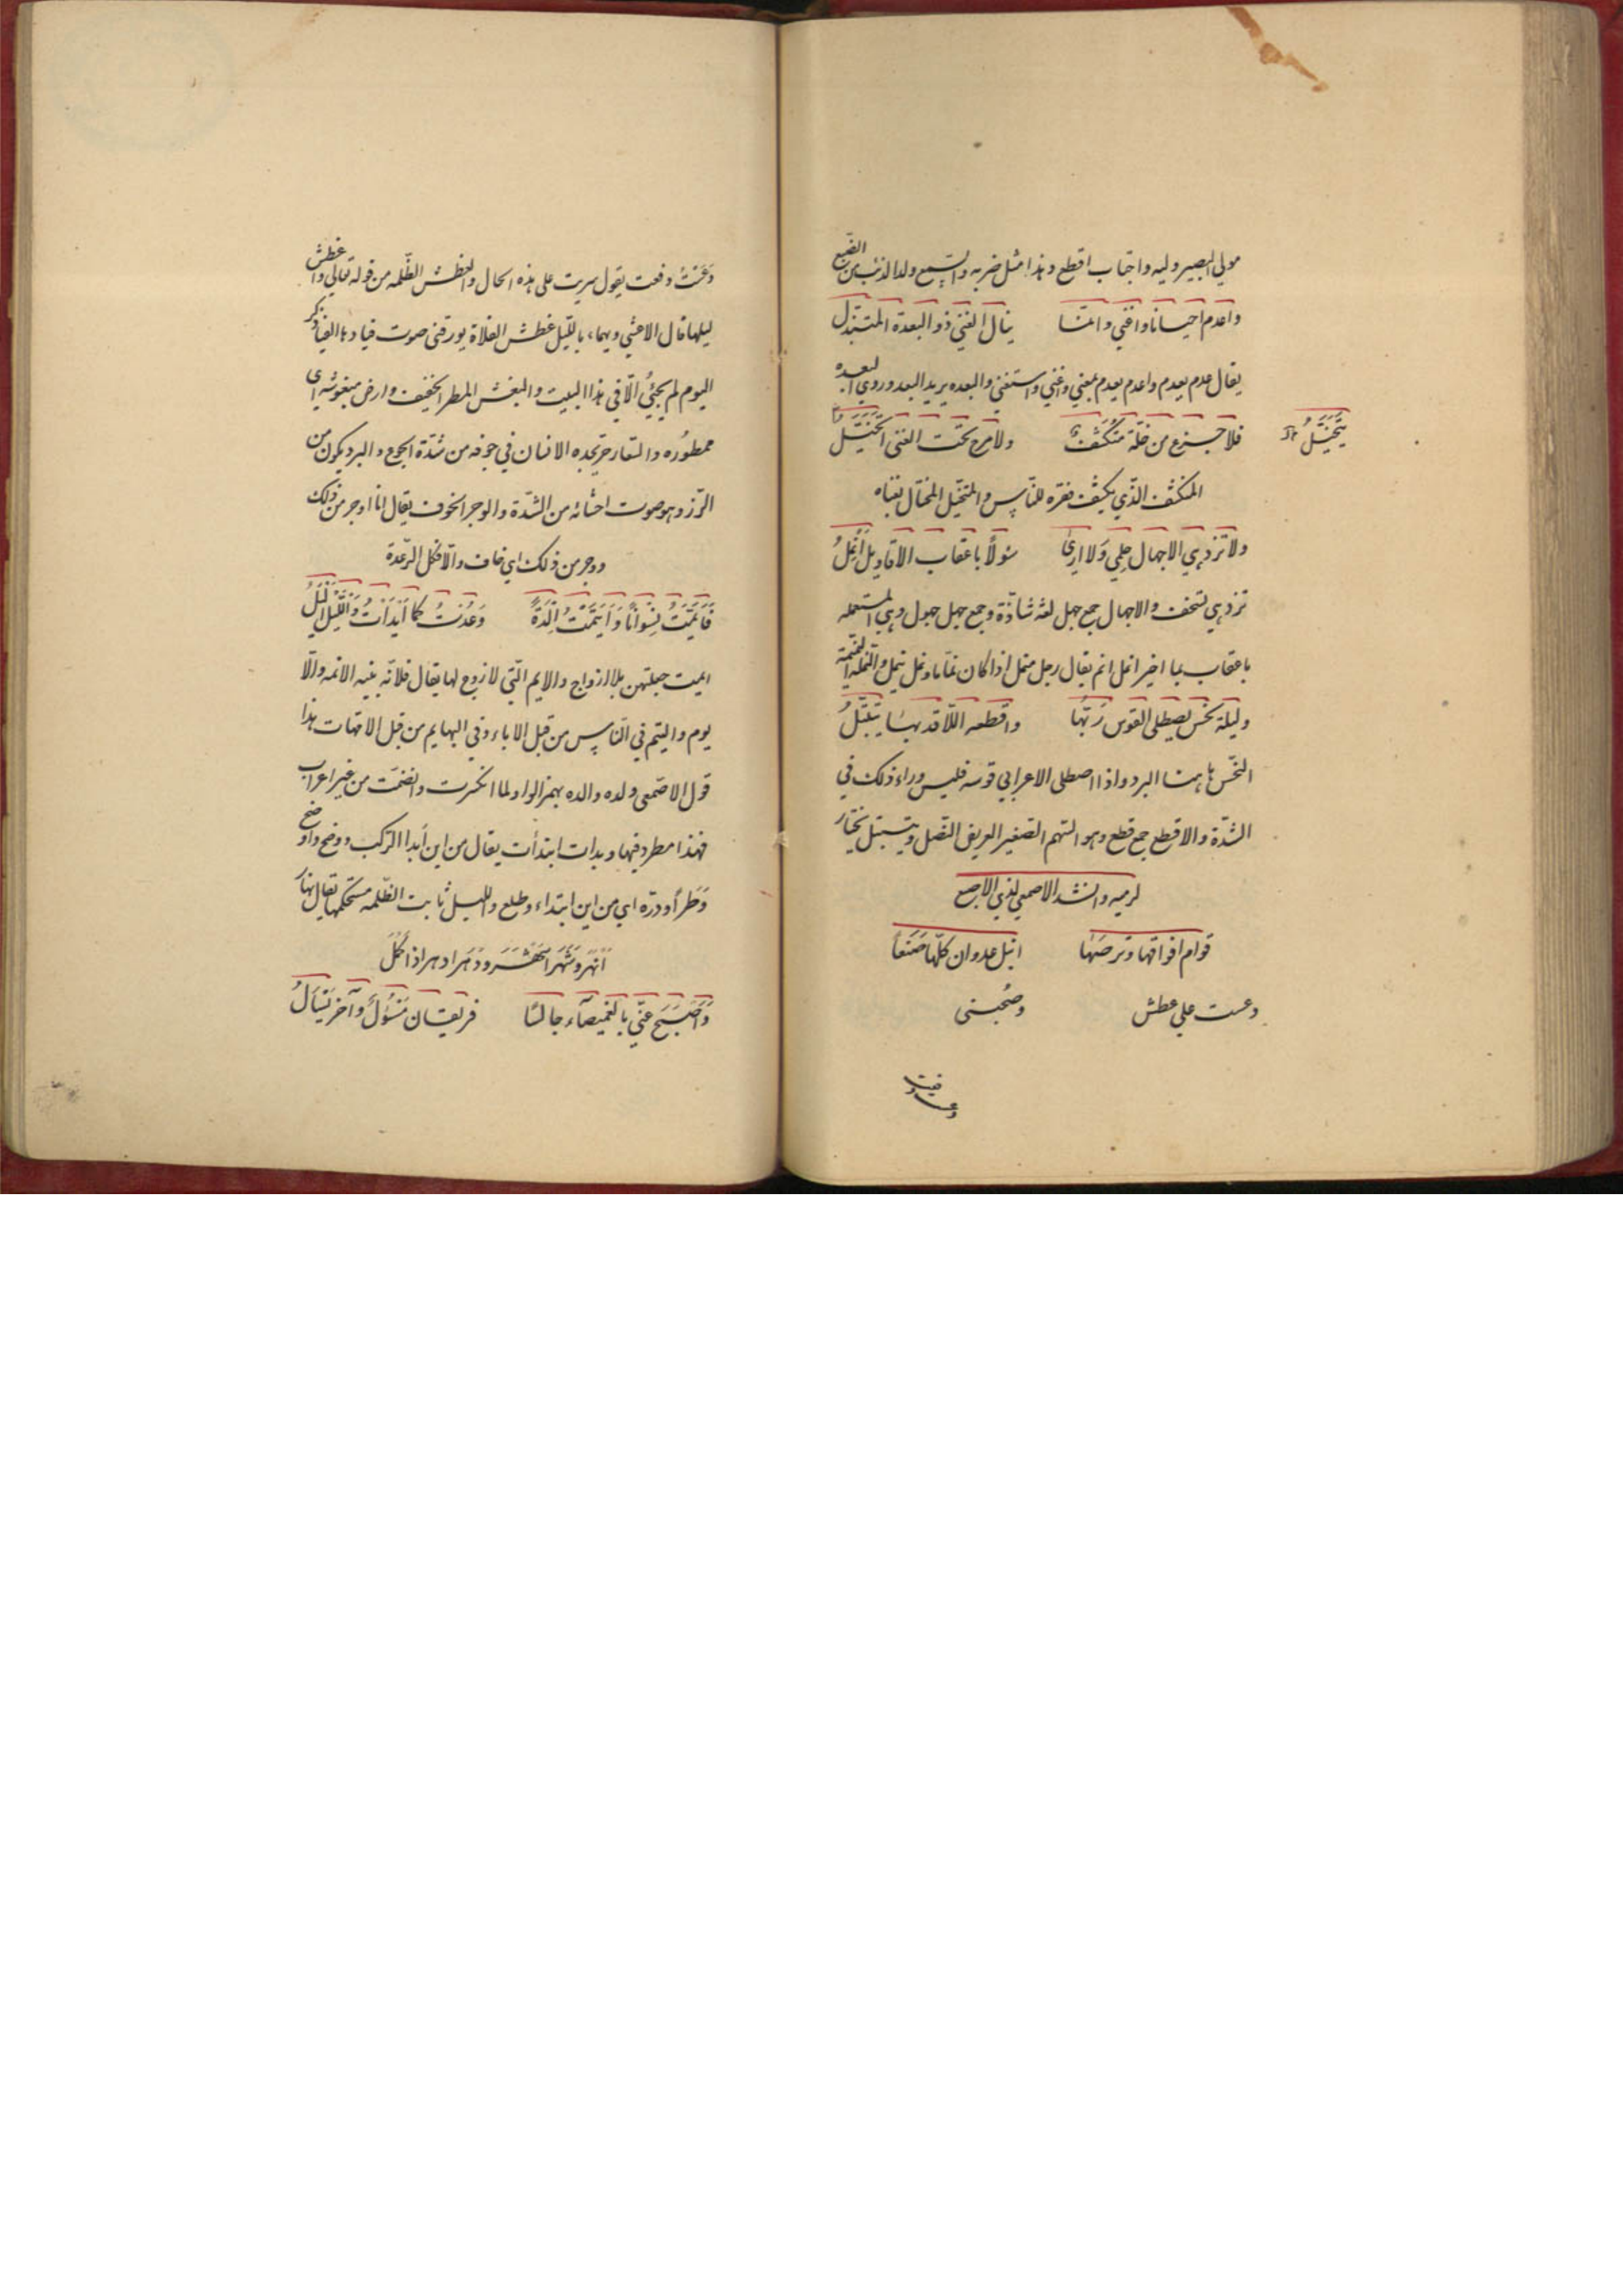 مولي البصير وليه واجتاب اقطع وهذا مثل ضربه والسمع ولد الذئب من الضبع
واعدم احيانا واغني وانما ينال الغني ذو البعدة المتبذل
يقال عدم يعدم واعدم يعدم بمعني واغني واستغني والبعده يريد البعد وروي البعده
فلا جزع من خلة متكشف ولا مرح تحت الغني اتخيل
يتخيل
المتكشف الذي يكشف فقره للناس والمتخيل المختال بغناه
ولا تزدهي الاجهال حلمي ولا اري سئولا باعقاب الاقاويل انمل
تزدهي تستخف والاجهال جمع جهل لغة شاذة وجمع جهل جهول وهي المستعمله
باعقاب بما اخبر انمل انم يقال رجل منمل اذا كان نماما ونمل ينمل والنمله النميمة
وليلة نحس يصطلي القوس ربها واقطعه اللاتي بها يتنبل
النحس هاهنا البرد واذا اصطلي الاعرابي قوسه فليس وراء ذلك في
الشدة والاقطع جمع قطع وهو السهم الصغير العريض النصل ويتنبل يختار
لرميه وانشد الاصمعي لذي الاصبع
قوام افواقها وترصها انبل عدوان كلها صنعا
دعست علي غطش وصحبتي
دعست دفعت يقول سريت علي هذه الحال والغطش الظلمه من قوله تعالي واغطش
ليلها قال الاعشي ويهماء بالليل غطش الفلاة يورقني صوت فيادها الفياد ذكر
البوم لم يجئ الا في هذا البيت والبغش المطر الخفيف وارض مبغوشه اي
ممطوره والسعار حر يجده الانسان في جوفه من شدة الجوع والبرد يكون من
الرز وهو صوت احشائه من الشدة والوجر الخوف يقال انا اوجر من ذلك
ووجر من ذلك اي خاف والافكل الرعدة
فايمت نسوانا وايتمت الدة وعدت كما ابدأت والليل اليل
ايمت جعلتهن بلا ازواج والايم التي لا زوج لها يقال فلانه بينه الايمه والا
يوم واليتم في الناس من قبل الاباء وفي البهايم من قبل الامهات هذا
قول الاصمعي ولده والده بهمز الواو لما انكسرت وانضمت من غير اعراب
فهذا مطرد فيها وبدات ابتدأت يقال من اين أبدا الركب ووضح واوضح
وطرأ ودره اي من اين ابتداء وطلع والليل ثابت الظلمه مستحكمها يقال نهار
واصبح عني بالغميصآء جالسا فريقان مسئول وآخر يسأل